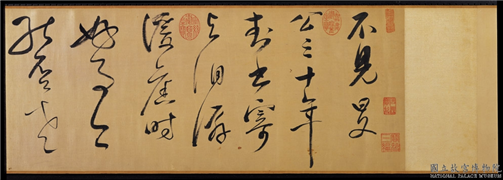 不見旻
公三十年
封書寄
與淚潺
湲舊時
好事今
能否老
國立故宮博物院
NATIONAL PALACE MUSEUM